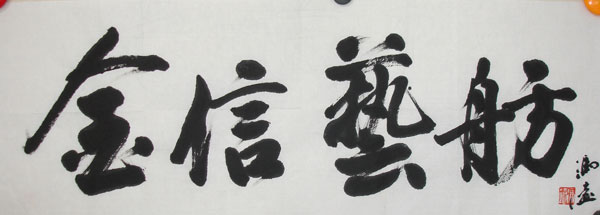 金信藝舫